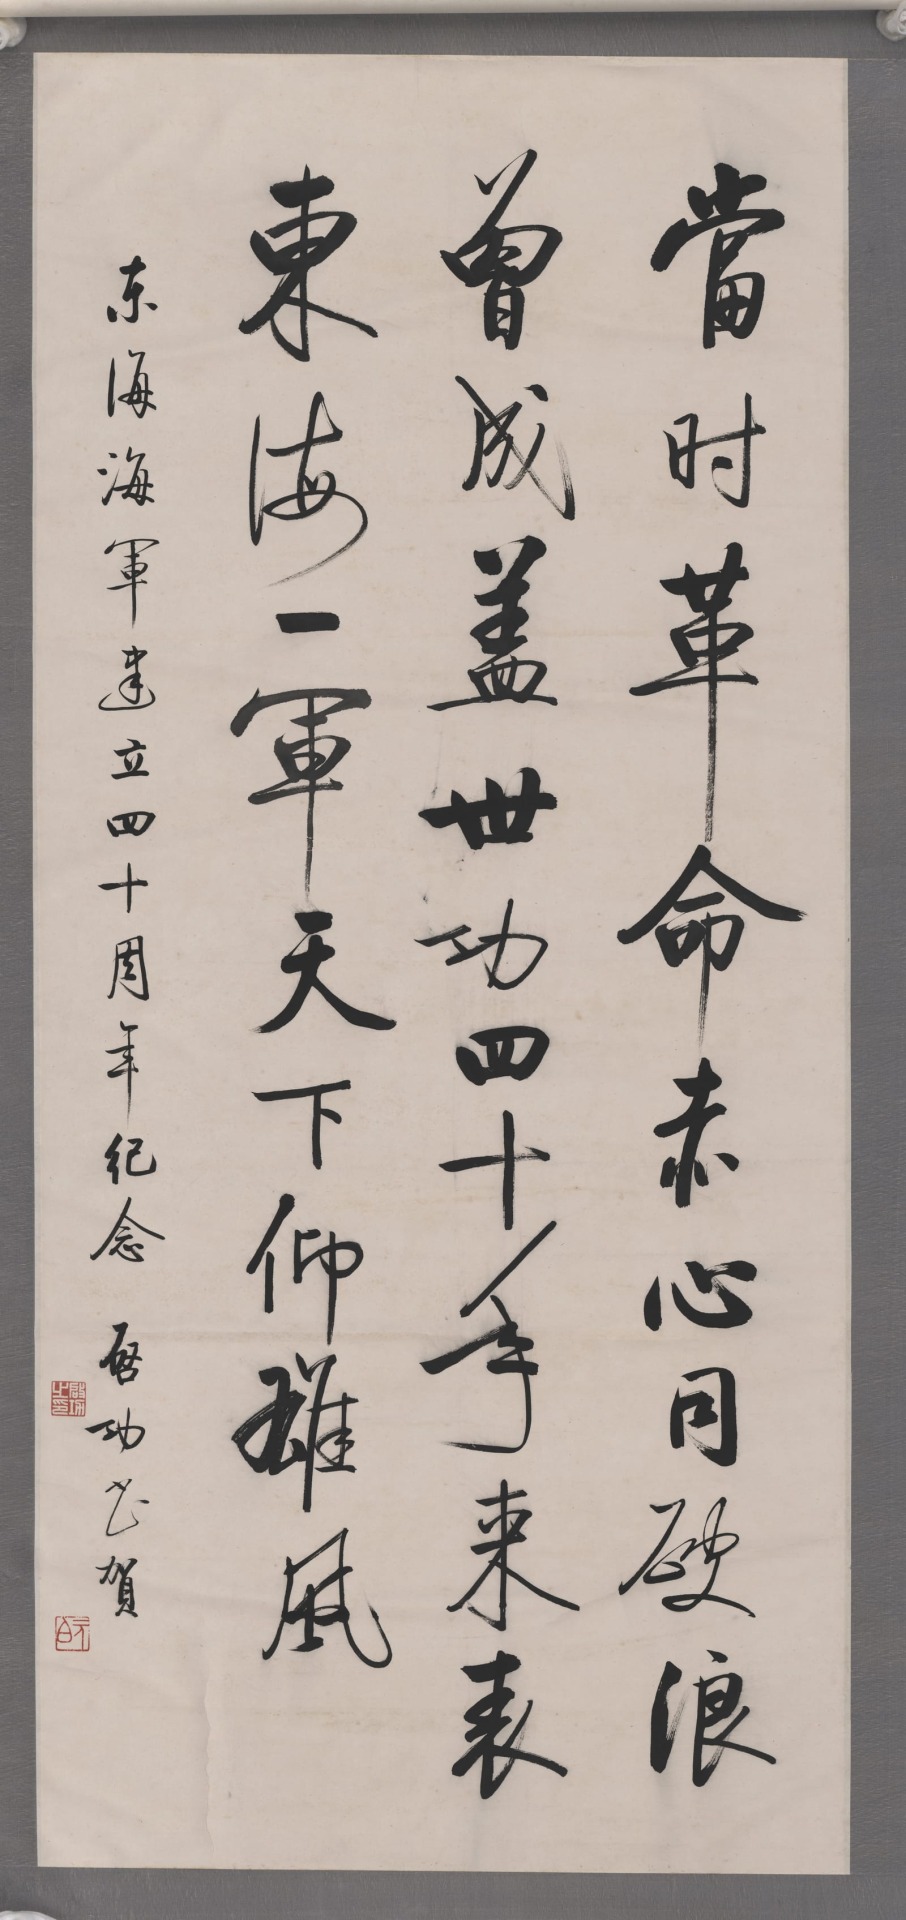 當时革命赤心同破浪
曾成盖世功四十年来表
東海一軍天下仰雄風
东海海軍建立四十周年纪念 启功书賀
啟功之印
元白